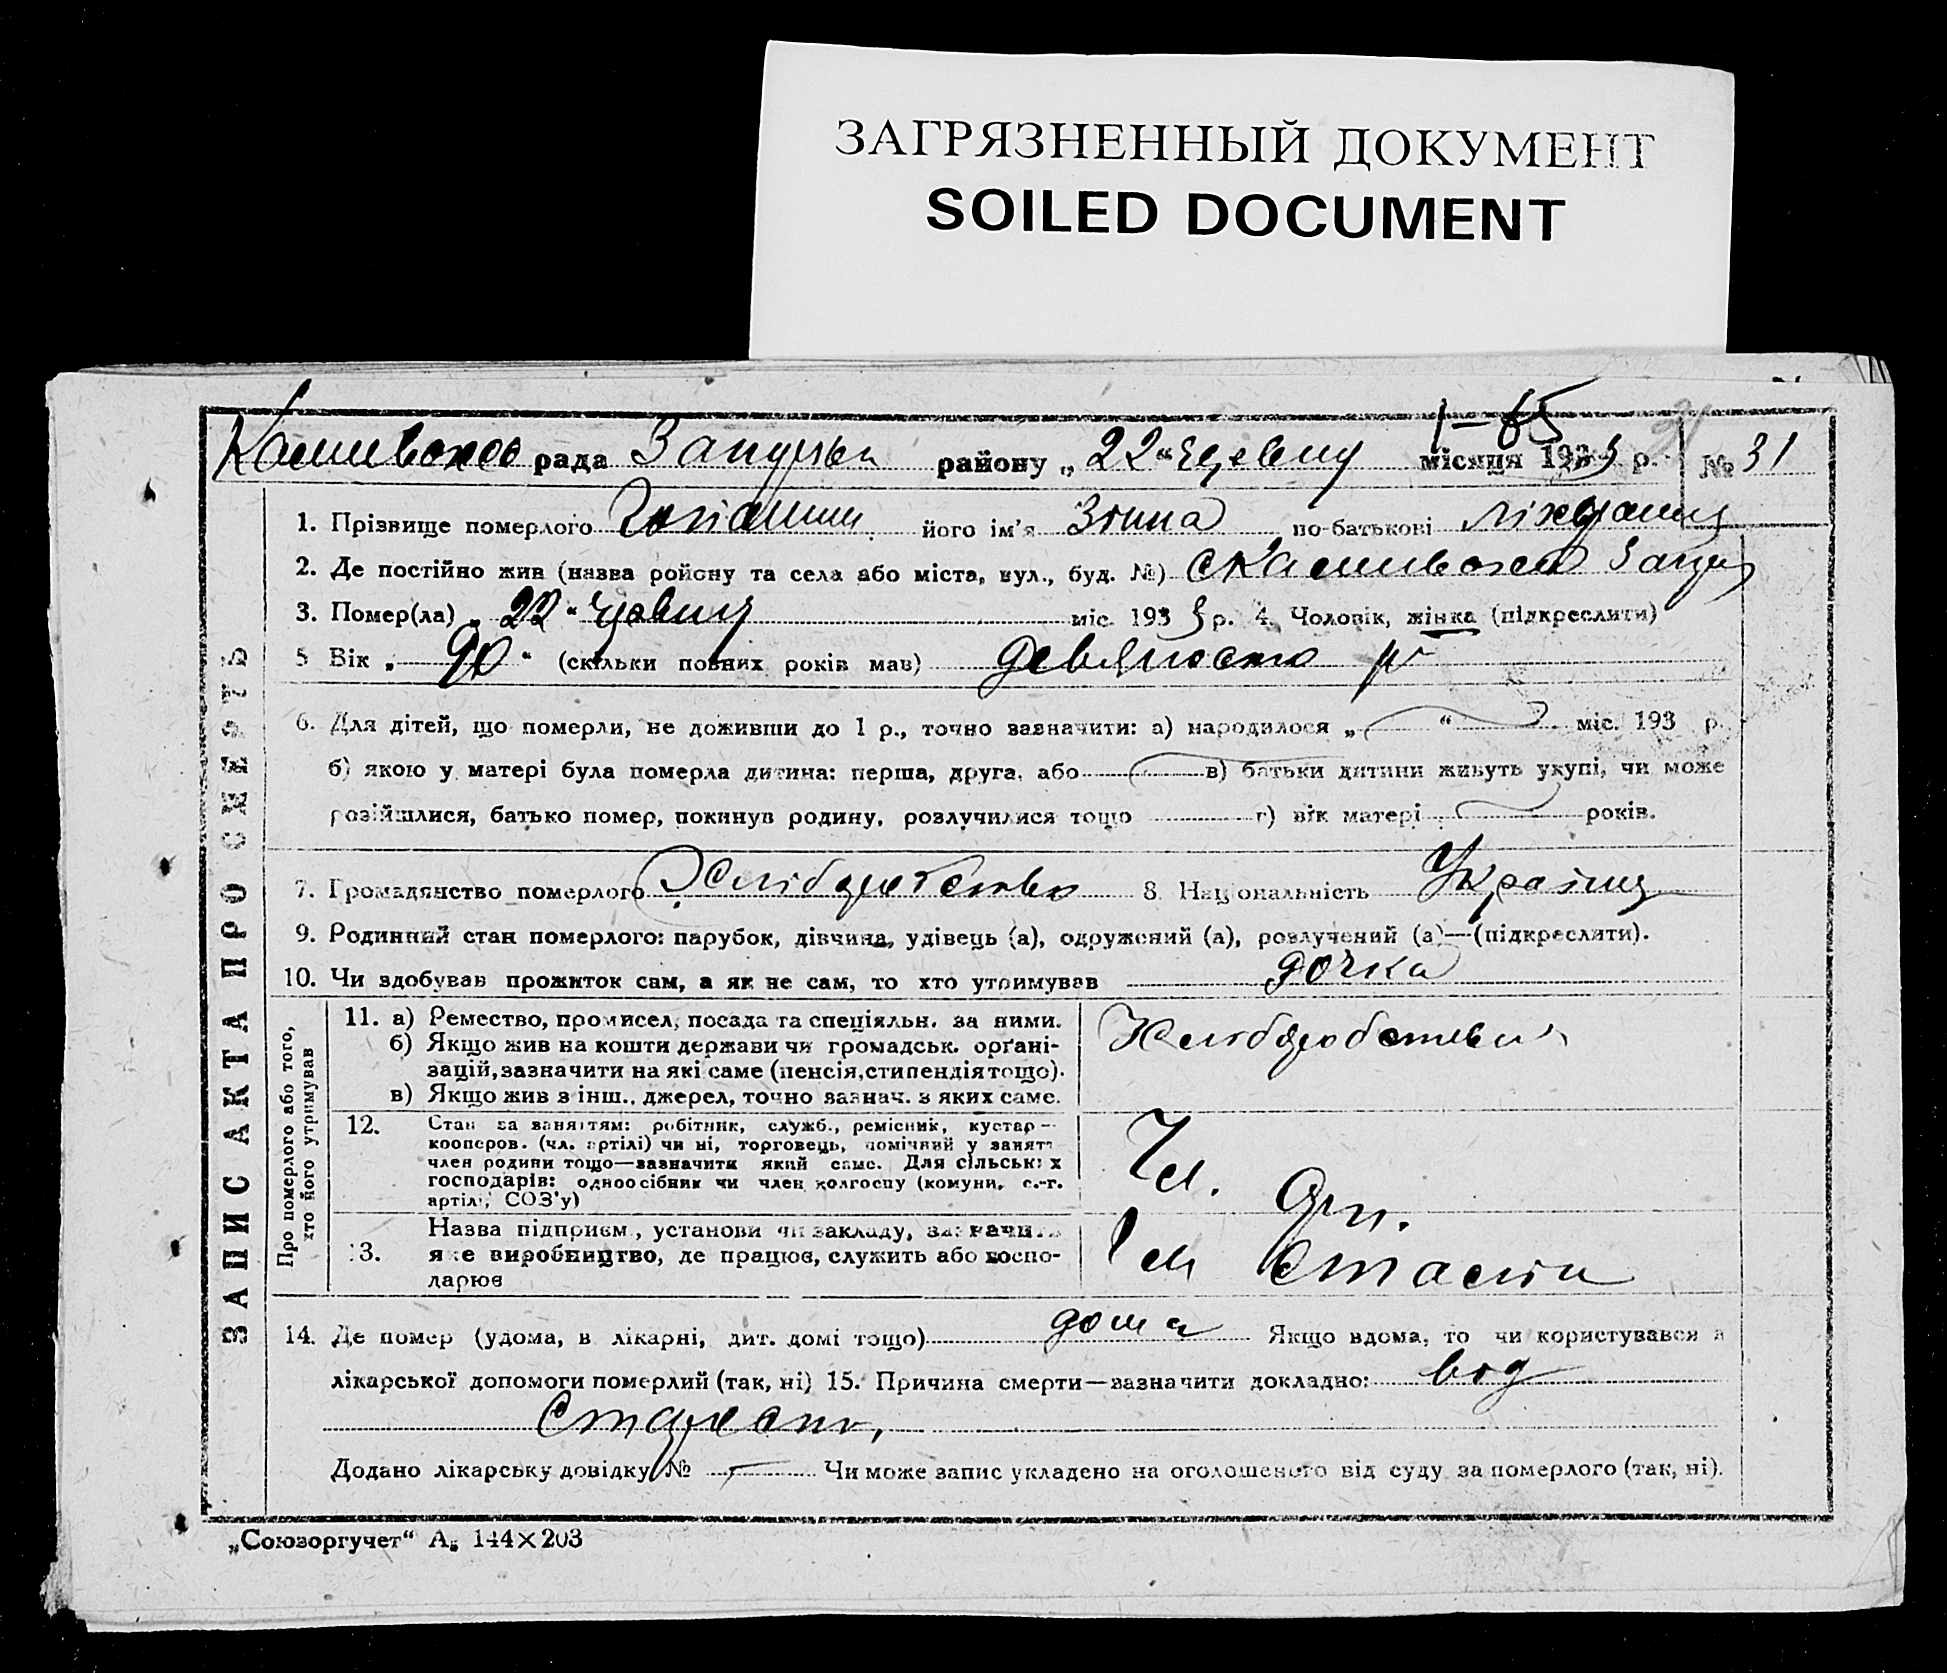 ЗАГРЯЗНЕННЫЙ ДОКУМЕНТ
SOILED DOCUMENT
1-65
рада району „22“ місяця 1933 р. № 31
ЗАПИС АКТА ПРО СМЕРТЬ
1. Прізвище померлого його ім'я по-батькові
2. Де постійно жив (назва району та села або міста, вул., буд. №)
3. Помер(ла) „22“ міс. 1933 р. 4. Чоловік, жінка (підкреслити)
5 Вік „90“ (скільки повних років мав) девяносто р
6. Для дітей, що померли, не доживши до 1 р., точно зазначити: а) народилося „ “ міс. 193 р.
б) якою у матері була померла дитина: перша, друга, або в) батьки дитини живуть укупі, чи може
розійшлися, батько помер, покинув родину, розлучилися тощо г) вік матері років.
7. Громадянство померлого 8. Національність
9. Родинний стан померлого: парубок, дівчина, удівець (а), одружений (а), розлучений (а)—(підкреслити).
10. Чи здобував прожиток сам, а як не сам, то хто утримував дочка
Про померлого або того,
хто його утримував
11. а) Ремество, промисел, посада та спеціяльн. за ними.
б) Якщо жив на кошти держави чи громадськ. органі-
зацій, зазначити на які саме (пенсія, стипендія тощо).
в) Якщо жив з інш.. джерел, точно зазнач. з яких саме.
12. Стан за заняттям: робітник, служб., ремісник, кустар-
кооперов. (чл. артілі) чи ні, торговець, помічний у занятт
член родини тощо—зазначити який саме. Для сільських
господарів: одноосібник чи член колгоспу (комуни, с.-г.
артілі, СОЗ'у)
Чл. Арт.
13. Назва підприєм., установи чи закладу, зазначить
яке виробництво, де працює, служить або госпо-
дарює
14. Де помер (удома, в лікарні, дит. домі тощо) дома Якщо вдома, то чи користувався з
лікарської допомоги померлий (так, ні) 15. Причина смерти—зазначити докладно: від
Старости,
Додано лікарську довідку № Чи може запис укладено на оголошеного від суду за померлого (так, ні).
„Союзоргучет“ А₅ 144×203